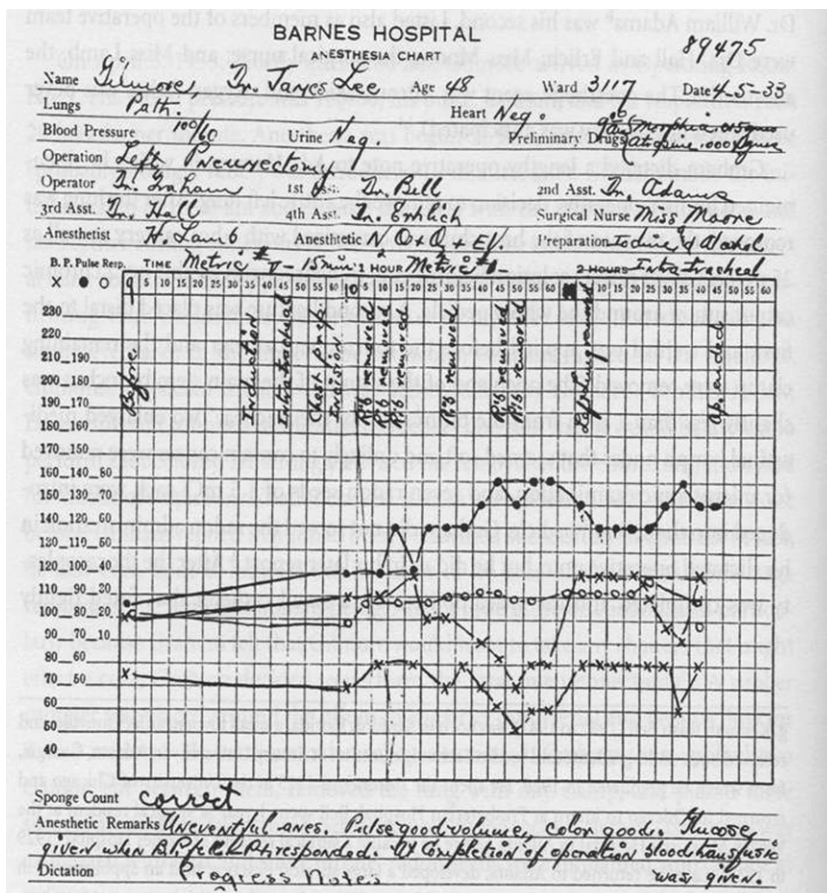 BARNES HOSPITAL
ANESTHESIA CHART
89475
Name Gilmore, Dr. James Lee Age 48 Ward 311 Date 4-5-33
Lungs Path. Heart Neg.
Blood Pressure 100/60 Urine Neg. Preliminary Drugs
Operation Left Pneumectomy
Operator Dr. Graham 1st Asst. Dr. Bell 2nd Asst. Dr. Adams
3rd Asst. Dr. Hall 4th Asst. Dr. Erhlich Surgical Nurse Miss Moore
Anesthetist H. Lamb Anesthetic Preparation
B. P. Pulse Resp. TIME Metric 15 min 1 HOUR Metric 2 HOURS Intra-tracheal
X ● O 9 5 10 15 20 25 30 35 40 45 50 55 60 10 5 10 15 20 25 30 35 40 45 50 55 60 5 10 15 20 25 30 35 40 45 50 55 60
230
220
210 190
200 180
190 170
180 160
170 150
160 140
150 130
140 120 60
130 110 50
120 100 40
110 90 30
100 80 20
90 70 10
80 60
70 50
60
50
40
Before
Induction
Intra-tracheal
Chest prep
Rib removed
Rib removed
Rib removed
Rib removed
Rib removed
Rib removed
Lung removed
Sponge Count correct
Anesthetic Remarks Uneventful anes. Pulse good volume, color good. Glucose
given when B.P. fell. Pt. responded. At Completion of operation, blood transfusion
Dictation Progress Notes was given.